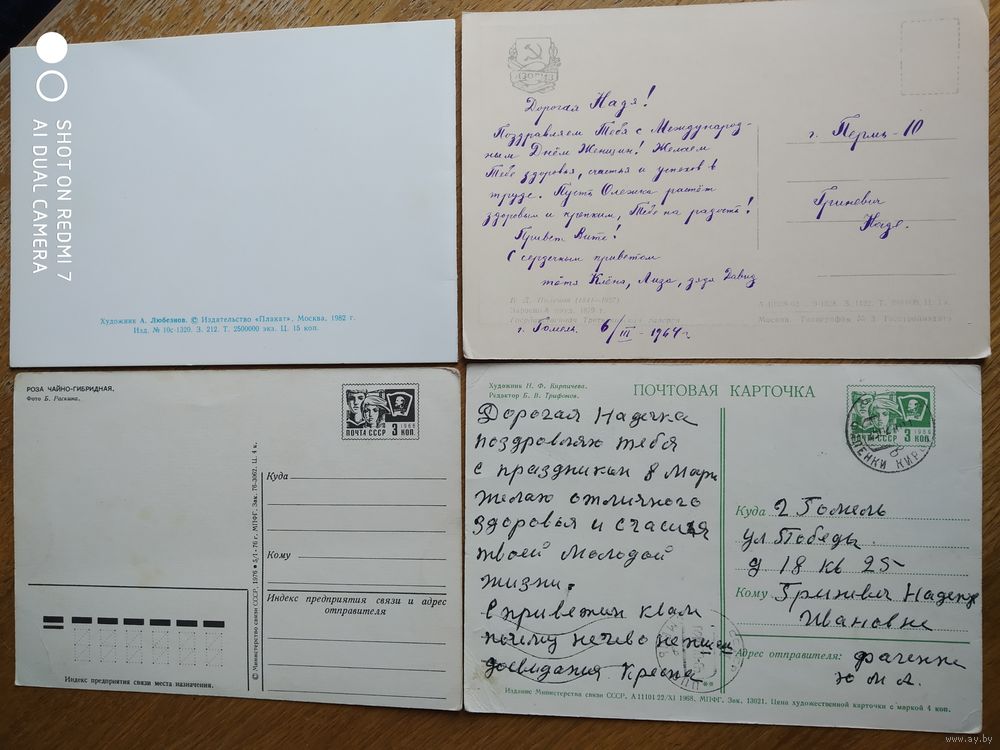 SHOT ON REDMI 7
AI DUAL CAMERA
Художник А. Любезнов. © Издательство «Плакат». Москва, 1982 г.
Изд. № 10с-1320. З. 212. Т. 2500000 экз. Ц. 15 коп.
Дорогая Надя!
Поздравляем Тебя с Международ-
ным Днём Женщин! Желаем
Тебе здоровья, счастья и успехов в
труде. Пусть Олежка растёт
здоровым и крепким, Тебе на радость!
Привет Вите!
С сердечным приветом
тётя Клёна, Лиза, дядя Давид
г. Гомель 6/III-1964г.
В. Д. Поленов (1844—1927)
Государственная Третьяковская галерея
г. Пермь-10
Гриневич
Наде.
РОЗА ЧАЙНО-ГИБРИДНАЯ.
Фото Б. Раскина.
ПОЧТА СССР 3 КОП.
1966
Куда
Кому
Индекс предприятия связи и адрес
отправителя
Индекс предприятия связи места назначения.
© Министерство связи СССР, 1976 • 5/I-76 г. МПФГ. Зак. 76-3062. Ц. 4 к.
Художник Н. Ф. Кирпичева.
Редактор Б. В. Трифонов.
ПОЧТОВАЯ КАРТОЧКА
СССР 3 КОП
1966
Дорогая Надечка
поздровляю тебя
с праздникам 8 Март
желаю отличного
здоровья и счастья
твоей молодой
жизни.
с приветам к вам
почиму нечево не пишеш
досвидания Кресна
Куда г Гомель
ул Победы
д 18 кв 25
Кому Гриневич Надежде
Ивановне
Адрес отправителя:
Ю М А.
Издание Министерства связи СССР. А 11101 22/XI 1968. МПФГ. Зак. 13021. Цена художественной карточки с маркой 4 коп.
www.ay.by